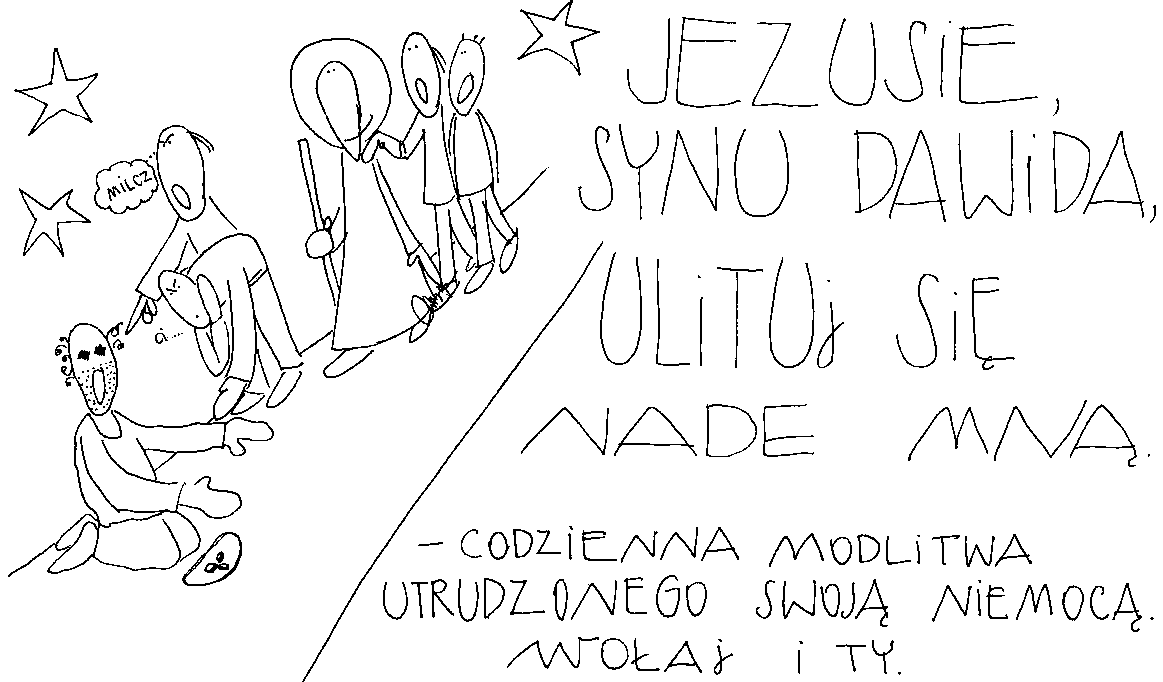 MILCZ
ci....
JEZUSIE,
SYNU DAWIDA,
ULITUJ SIĘ
NADE MNĄ.
- CODZIENNA MODLITWA
UTRUDZONEGO SWOJĄ NIEMOCĄ.
WOŁAJ I TY.